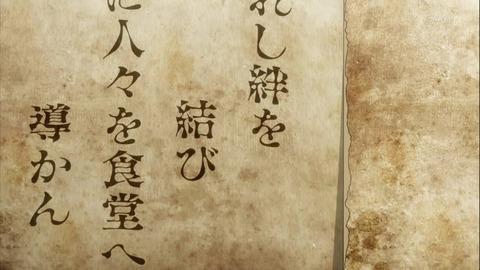 れし絆を
結び
に人々を食堂へ
導かん